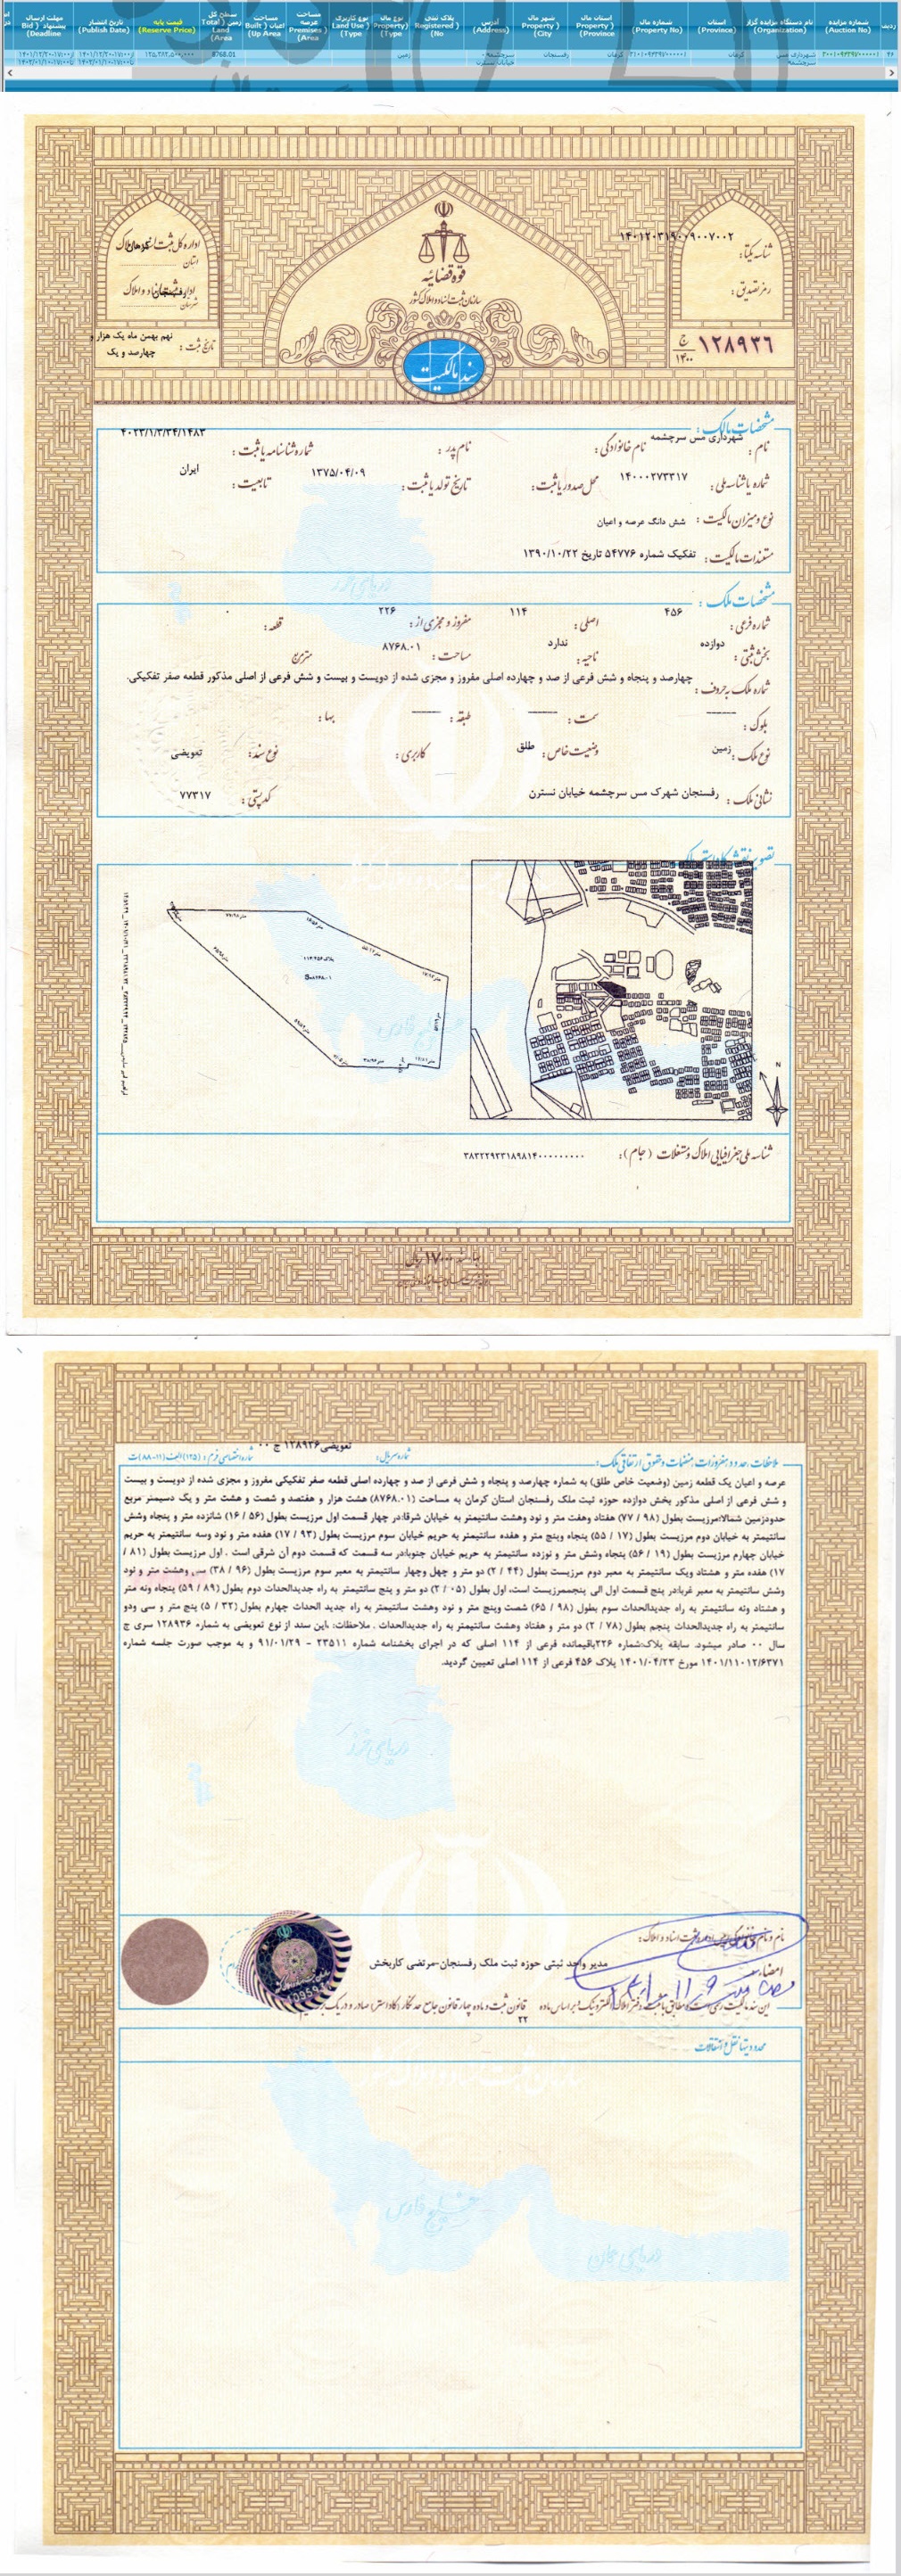 ردیف
شماره مزایده (Auction No)
نام دستگاه مزایده گزار (Organization)
استان (Province)
شماره مال (Property No)
استان مال (Property Province)
شهر مال (Property City)
آدرس (Address)
پلاک ثبتی (Registered No)
نوع مال (Property Type)
نوع کاربری (Land Use Type)
مساحت عرصه (Premises Area)
مساحت اعیان (Built Up Area)
سطح کل زمین (Total Land Area)
قیمت پایه (Reserve Price)
تاریخ انتشار (Publish Date)
مهلت ارسال پیشنهاد (Bid Deadline)
۴۶
شهرداری مس سرچشمه
کرمان
کرمان
رفسنجان
زمین
8768.01
۱۴۰۱۲۰۳۱۹۰۰۹۰۰۷۰۰۲
شناسه یکتا:
رمز تصدیق:
۱۲۸۹۳۶ ج ۱۴۰۰
قوه قضائیه
سازمان ثبت اسناد و املاک کشور
سند مالکیت
استان
شهرستان
تاریخ ثبت: نهم بهمن ماه یک هزار و چهارصد و یک
مشخصات مالک:
نام: شهرداری مس سرچشمه نام خانوادگی: نام پدر: شماره شناسنامه یا ثبت: ۴۰۲۳/۱/۳/۳۴/۱۴۸۳
شماره یا شناسه ملی: ۱۴۰۰۰۲۷۳۳۱۷ محل صدور یا ثبت: تاریخ تولد یا ثبت: ۱۳۷۵/۰۴/۰۹ تابعیت: ایران
نوع و میزان مالکیت: شش دانگ عرصه و اعیان
مستندات مالکیت: تفکیک شماره ۵۴۷۷۶ تاریخ ۱۳۹۰/۱۰/۲۲
مشخصات ملک:
شماره فرعی: ۴۵۶ اصلی: ۱۱۴ مفروز و مجزی از: ۲۲۶ قطعه: ۰
بخش ثبتی: دوازده ناحیه: ندارد مساحت: ۸۷۶۸.۰۱ متر مربع
شماره ملک به حروف: چهارصد و پنجاه و شش فرعی از صد و چهارده اصلی مفروز و مجزی شده از دویست و بیست و شش فرعی از اصلی مذکور قطعه صفر تفکیکی.
بلوک: سمت: طبقه: بها:
نوع ملک: زمین وضعیت خاص: طلق کاربری: نوع سند: تعویضی
نشانی ملک: رفسنجان شهرک مس سرچشمه خیابان نسترن کد پستی: ۷۷۳۱۷
تصویر نقشه کاداستر ملک:
N
شناسه ملی جغرافیایی املاک و مستغلات (جام): ۳۸۳۲۲۹۲۳۱۸۹۸۱۴۰۰۰۰۰۰۰۰۰
ملاحظات، حدود، مفروزات، منضمات و حقوق ارتفاقی ملک: شماره سریال: تعویضی ۱۲۸۹۳۶ ج ۰۰ شماره اختصاصی فرم: (۱۲۵) الف (۱۱-۸۸) ت
عرصه و اعیان یک قطعه زمین (وضعیت خاص طلق) به شماره چهارصد و پنجاه و شش فرعی از صد و چهارده اصلی قطعه صفر تفکیکی مفروز و مجزی شده از دویست و بیست
و شش فرعی از اصلی مذکور بخش دوازده حوزه ثبت ملک رفسنجان استان کرمان به مساحت (۸۷۶۸.۰۱) هشت هزار و هفتصد و شصت و هشت متر و یک دسیمتر مربع
حدودزمین شمالا:مرزیست بطول (۹۸ / ۷۷) هفتاد وهفت متر و نود وهشت سانتیمتر به خیابان شرقا:در چهار قسمت اول مرزیست بطول (۵۶ / ۱۶) شانزده متر و پنجاه وشش
سانتیمتر به خیابان دوم مرزیست بطول (۱۷ / ۵۵) پنجاه وپنج متر و هفده سانتیمتر به حریم خیابان سوم مرزیست بطول (۹۳ / ۱۷) هفده متر و نود وسه سانتیمتر به حریم
خیابان چهارم مرزیست بطول (۱۹ / ۵۶) پنجاه وشش متر و نوزده سانتیمتر به حریم خیابان جنوبا:در سه قسمت که قسمت دوم آن شرقی است . اول مرزیست بطول (۸۱ /
۱۷) هفده متر و هشتاد ویک سانتیمتر به معبر دوم مرزیست بطول (۴۴ / ۲) دو متر و چهل وچهار سانتیمتر به معبر سوم مرزیست بطول (۹۶ / ۳۸) سی وهشت متر و نود
وشش سانتیمتر به معبر غربا:در پنج قسمت اول الی پنجممرزیست است، اول بطول (۰۵ / ۲) دو متر و پنج سانتیمتر به راه جدیدالحداث دوم بطول (۸۹ / ۵۹) پنجاه ونه متر
و هشتاد ونه سانتیمتر به راه جدیدالحداث سوم بطول (۹۸ / ۶۵) شصت وپنج متر و نود وهشت سانتیمتر به راه جدید الحداث چهارم بطول (۳۲ / ۵) پنج متر و سی ودو
سانتیمتر به راه جدیدالحداث پنجم بطول (۷۸ / ۲) دو متر و هفتاد وهشت سانتیمتر به راه جدیدالحداث . ملاحظات: .این سند از نوع تعویضی به شماره ۱۲۸۹۳۶ سری ج
سال ۰۰ صادر میشود. سابقه پلاک:شماره ۲۲۶باقیمانده فرعی از ۱۱۴ اصلی که در اجرای بخشنامه شماره ۲۳۵۱۱ - ۹۱/۰۱/۲۹ و به موجب صورت جلسه شماره
۱۴۰۱/۱۱۰۱۲/۶۳۷۱ مورخ ۱۴۰۱/۰۴/۲۳ پلاک ۴۵۶ فرعی از ۱۱۴ اصلی تعیین گردید.
دریای خزر
امضاء
مدیر واحد ثبتی حوزه ثبت ملک رفسنجان-مرتضی کاربخش
۲۲
محدودیتها، نقل و انتقالات
خلیج فارس
دریای عمان